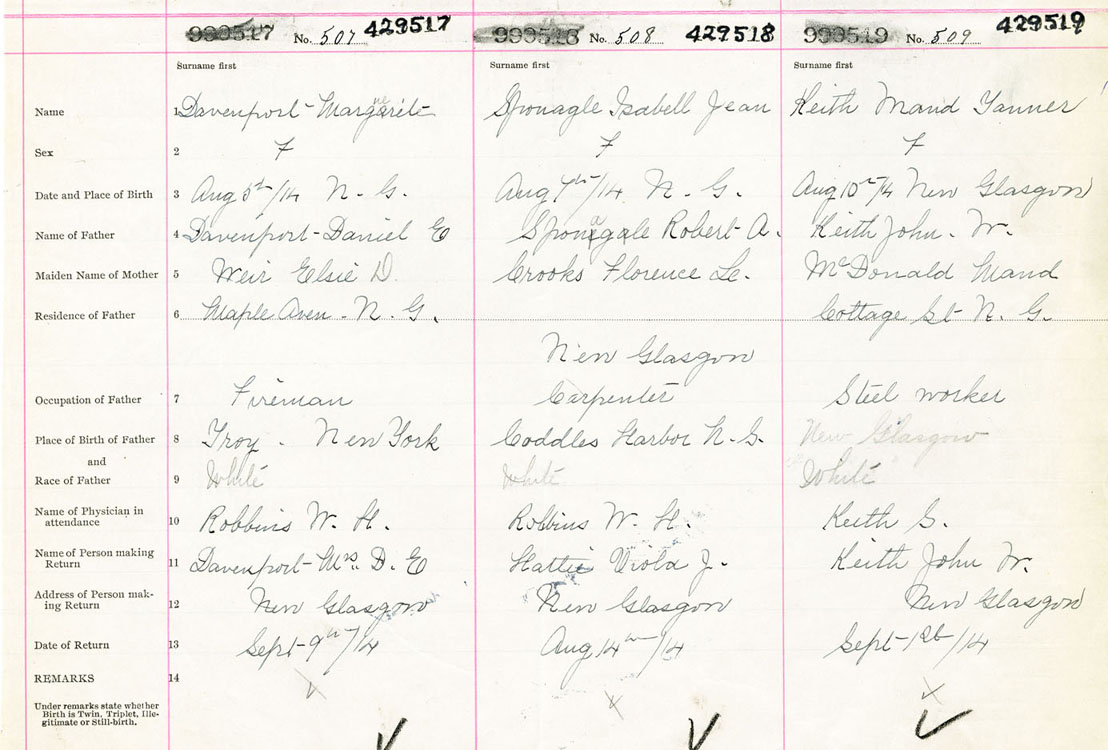 999517 No. 507 429517 999518 No. 508 429518 999519 No. 509 429519
Surname first Surname first Surname first
Name 1 Davenport Margarite Sponagle Isabell Jean Keith Maud Tanner
Sex 2 F F F
Date and Place of Birth 3 Aug 5th/14 N. G. Aug 7th/14 N. G. Aug 10th/14 New Glasgow
Name of Father 4 Davenport Daniel E Sponagle Robert A. Keith John. W.
Maiden Name of Mother 5 Weir Elsie D. Crooks Florence Le. McDonald Maud
Residence of Father 6 Maple Aven. N. G. Cottage St N. G.
New Glasgow
Occupation of Father 7 Fireman Carpenter Steel worker
Place of Birth of Father 8 Troy. New York Coddles Harbor N. S. New Glasgow
and
Race of Father 9 White White White
Name of Physician in
attendance 10 Robbins W. H. Robbins W. H. Keith S.
Name of Person making
Return 11 Davenport Mrs. D. E Hattie Viola J. Keith John W.
Address of Person mak-
ing Return 12 New Glasgow New Glasgow New Glasgow
Date of Return 13 Sept 9th/14 Aug 14th/14 Sept 1st/14
REMARKS 14
Under remarks state whether
Birth is Twin, Triplet, Ille-
gitimate or Still-birth.